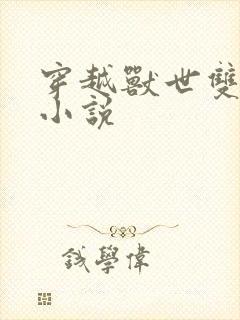 穿越獸世雙
小說
錢學偉